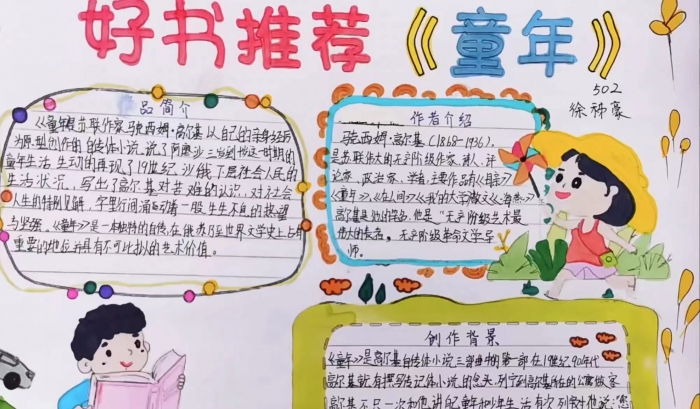 好书推荐《童年》
502
徐祎豪
品简介
《童年》是苏联作家马克西姆·高尔基以自己的童年经历
为原型创作的自传体小说,说了阿廖沙三岁到十岁这一时期的
童年生活,生动的再现了19世纪 沙俄下层社会人民的
生活状况,写出了高尔基对苦难的认识,对社会
人生的特别见解,字里行间涌动着一股生生不息的热望
与坚强。《童年》是一本独特的自传,在俄苏乃至世界文学史上占有
重要的地位并具有不可比拟的艺术价值。
作者介绍
马克西姆·高尔基(1868-1936),
是苏联伟大的无产阶级作家,诗人,评
论家,政治家,学者,主要作品有《母亲》
《童年》,《在人间》《我的大学》散文《海燕》
高尔基是他的笔名,他是“无产阶级艺术最
伟大的代表者。无产阶级革命文学导
师。
创作背景
《童年》是高尔基自传体小说三部曲中的第一部在19世纪90年代
高尔基就有撰写传记体小说的念头,列宁到高尔基在的寓所做客
高尔基不只一次和他讲起童年和少年生活有次列